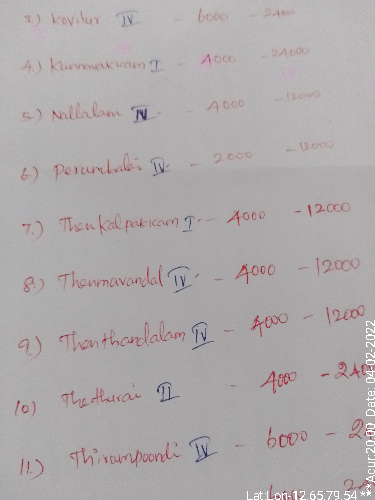 3.) Kovilur IV - 6000 - 24000
4.) Kunnavakkam I - 4000 - 24000
5.) Nallalam IV - 4000 - 12000
6.) Perumbakki IV - 2000 - 12000
7.) Thenkalpakkam I - 4000 - 12000
8.) Thenmavandal IV - 4000 - 12000
9.) Thanthandalam IV - 4000 - 12000
10) Thethurai II - 4000 -
11.) Thirampoondi IV - 6000 -
Lat Lon-12.65,79.54 *** Acur:20.00 Date: 04-02-2022